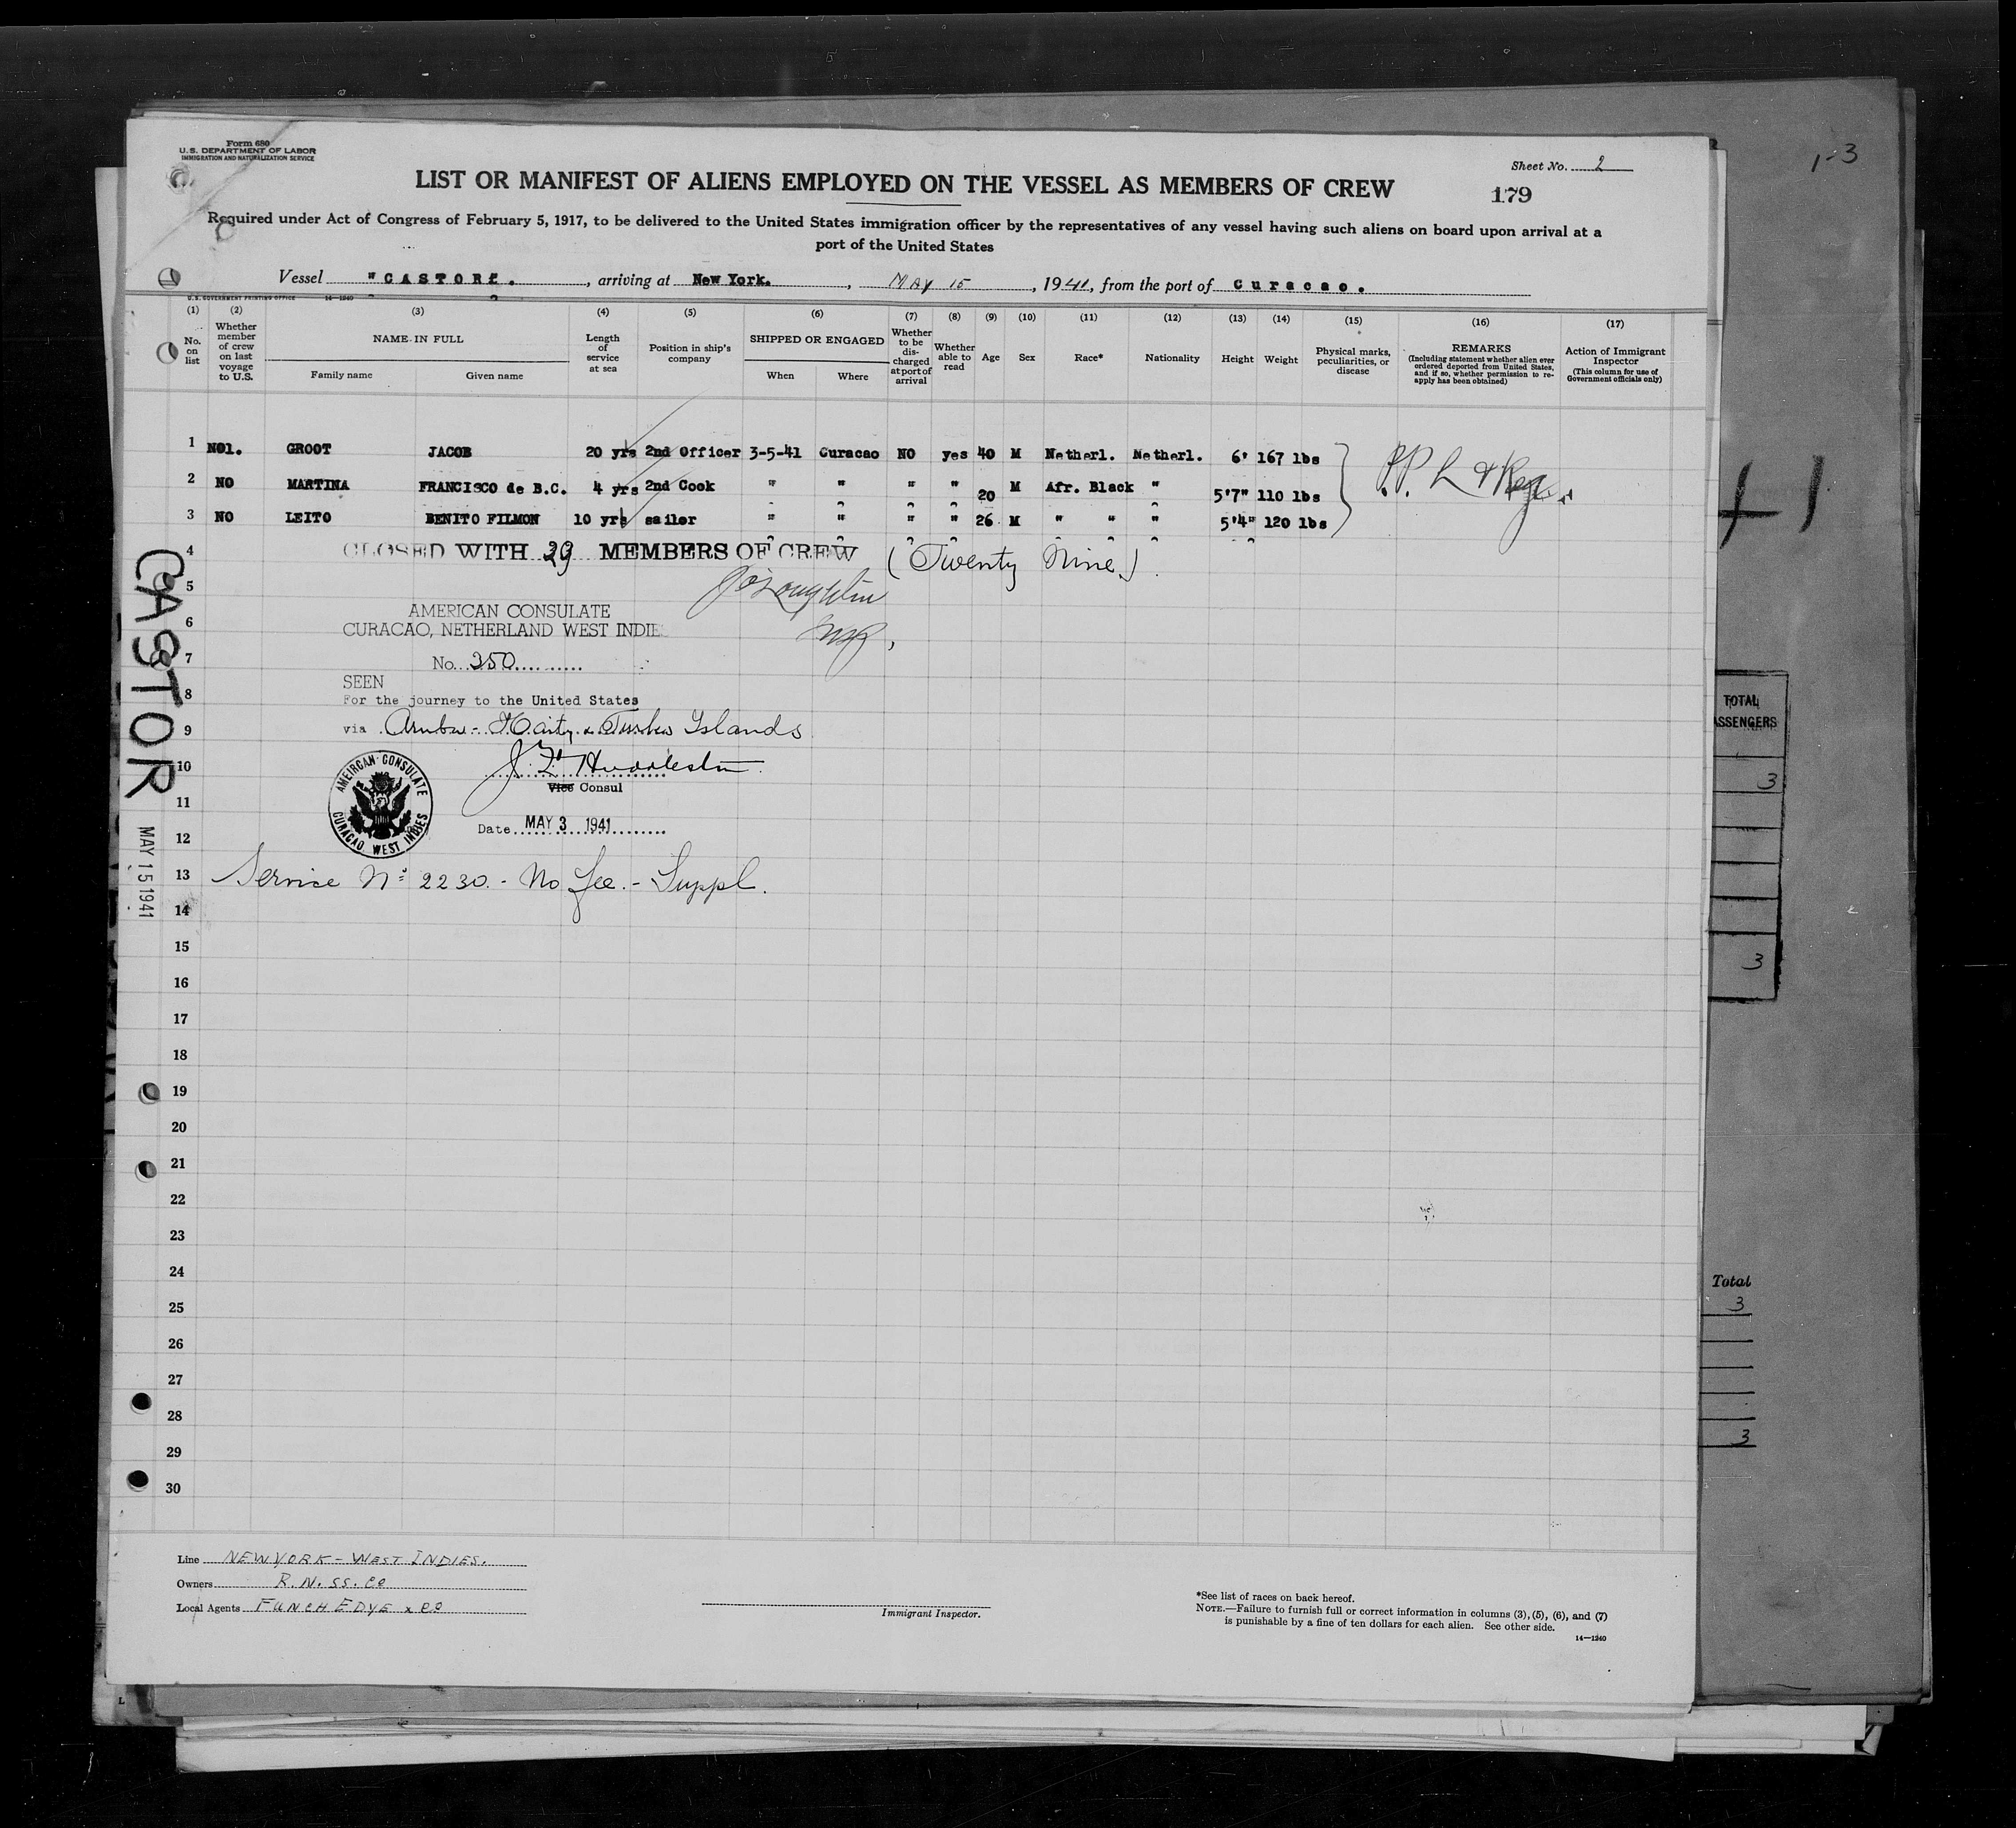 Form 680
U.S. DEPARTMENT OF LABOR
IMMIGRATION AND NATURALIZATION SERVICE
Sheet No. 2
1-3
LIST OR MANIFEST OF ALIENS EMPLOYED ON THE VESSEL AS MEMBERS OF CREW
179
Required under Act of Congress of February 5, 1917, to be delivered to the United States immigration officer by the representatives of any vessel having such aliens on board upon arrival at a
port of the United States
Vessel "CASTOR". , arriving at New York. , MAY 15 , 1941, from the port of Curacao.
U.S. GOVERNMENT PRINTING OFFICE 14—1240
(1) No. on list
(2) Whether member of crew on last voyage to U.S.
(3) NAME IN FULL
Family name Given name
(4) Length of service at sea
(5) Position in ship's company
(6) SHIPPED OR ENGAGED
When Where
(7) Whether to be discharged at port of arrival
(8) Whether able to read
(9) Age
(10) Sex
(11) Race*
(12) Nationality
(13) Height
(14) Weight
(15) Physical marks, peculiarities, or disease
(16) REMARKS
(Including statement whether alien ever ordered deported from United States, and if so, whether permission to reapply has been obtained)
(17) Action of Immigrant Inspector
(This column for use of Government officials only)
1 NO1. GROOT JACOB 20 yrs 2nd Officer 3-5-41 Curacao NO yes 40 M Netherl. Netherl. 6' 167 lbs
2 NO MARTINA FRANCISCO de B.C. 4 yrs 2nd Cook " " " " 20 M Afr. Black " 5'7" 110 lbs
3 NO LEITO BENITO FILMON 10 yrs sailor " " " " 26 M " " " 5'4" 120 lbs
4 CLOSED WITH 29 MEMBERS OF CREW (Twenty Nine)
5
AMERICAN CONSULATE
6
CURACAO, NETHERLAND WEST INDIE
7
No. 350
SEEN
8
For the journey to the United States
9 via Aruba - Haity & Turks Islands
10
Vice Consul
11
AMERICAN CONSULATE
CURACAO WEST INDIES
Date MAY 3 1941
12
13 Service No. 2230. - No fee. - Suppl.
14
15
16
17
18
19
20
21
22
23
24
25
26
27
28
29
30
CASTOR
MAY 15 1941
TOTAL
ASSENGERS
3
3
Total
3
3
Line NEW YORK - WEST INDIES.
Owners R.N.SS.Co
Local Agents FUNCH EDYE & Co
Immigrant Inspector.
*See list of races on back hereof.
NOTE.—Failure to furnish full or correct information in columns (3), (5), (6), and (7)
is punishable by a fine of ten dollars for each alien. See other side.
14—1240